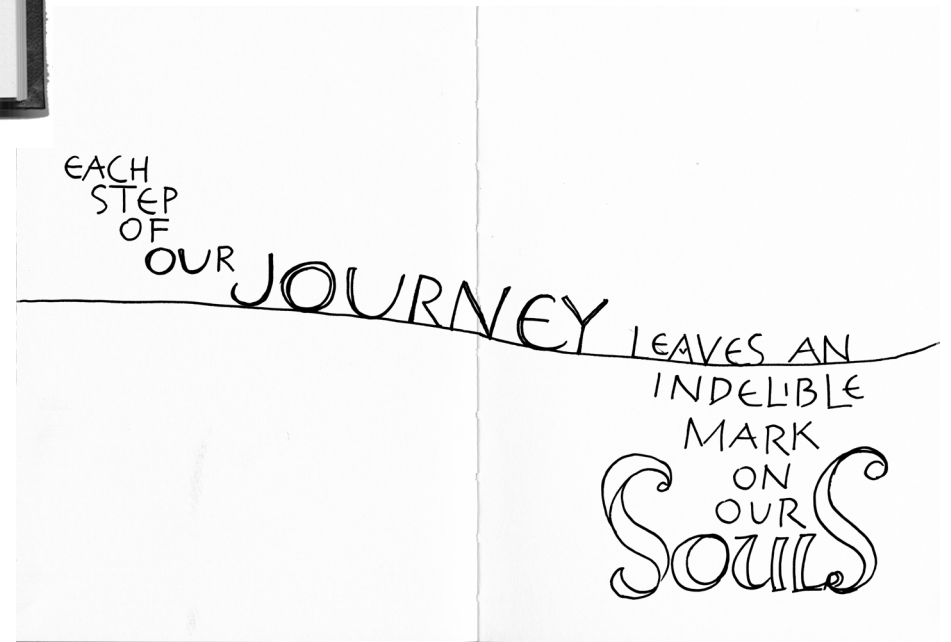 EACH
STEP
OF
OUR
JOURNEY
LEAVES AN
INDELIBLE
MARK
ON
OUR
SOULS